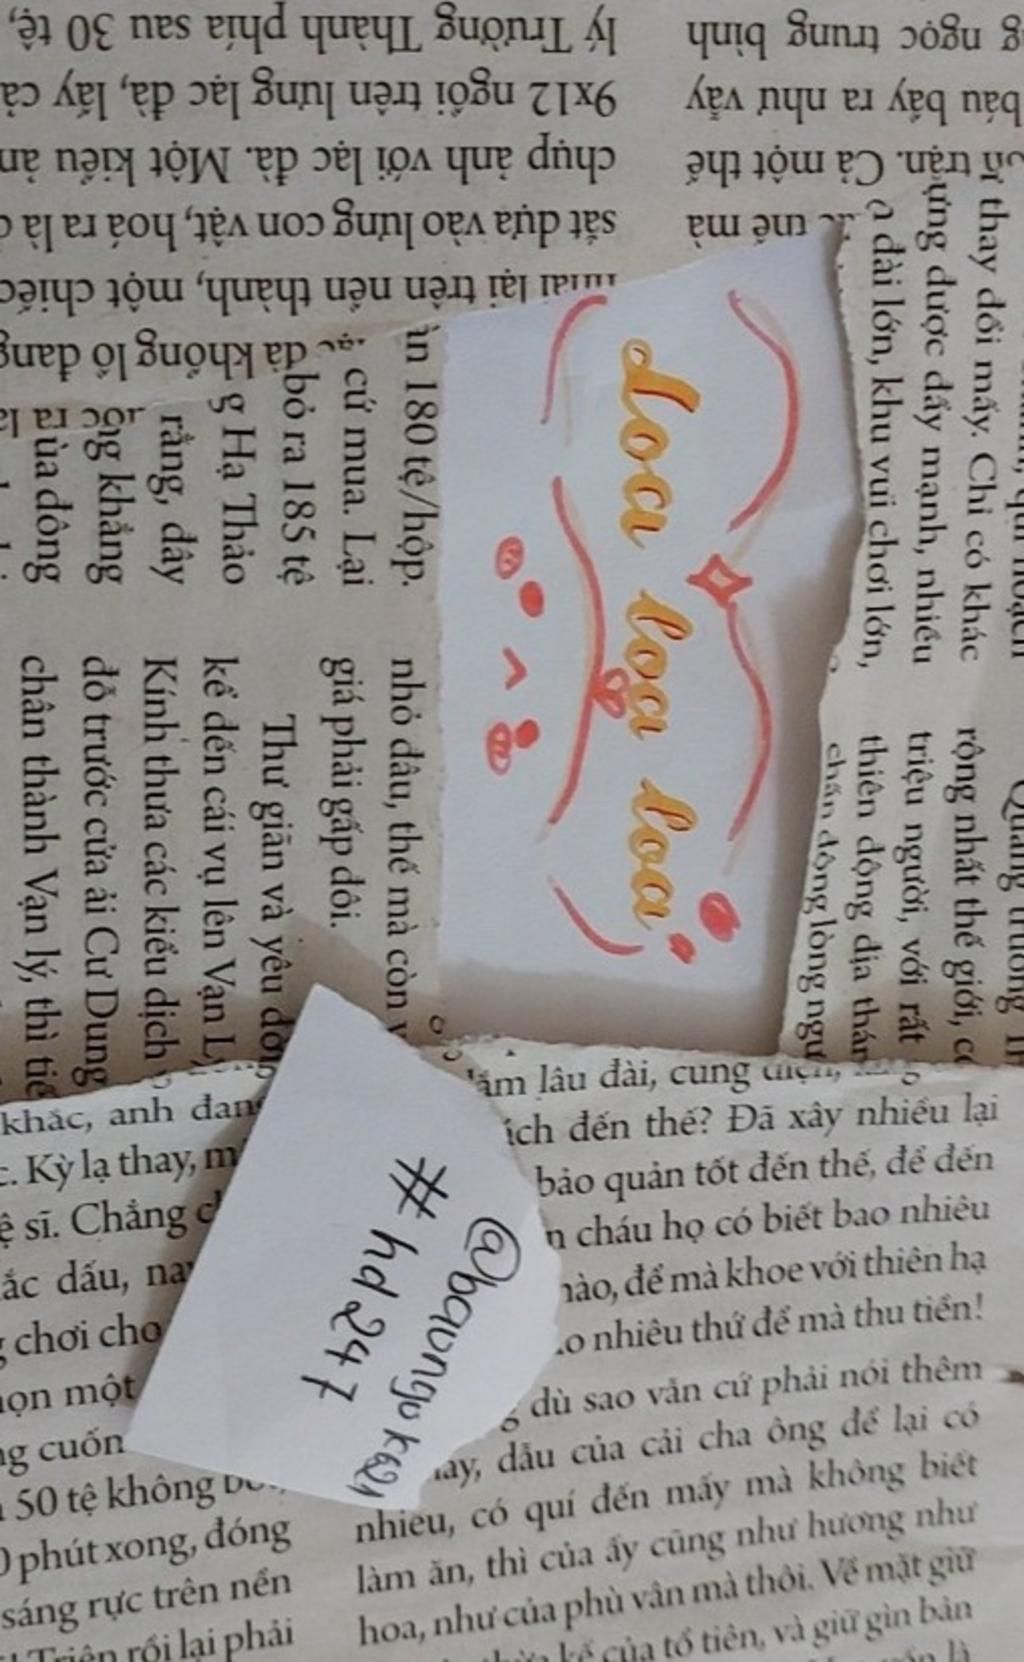 lý Trường Thành phía sau 30 tệ,
9x12 ngồi trên lưng lạc đà, lấy
chụp ảnh với lạc đà. Một kiểu
sát dựa vào lưng con vật, hoá ra là
lại trên nền thành, một chiếc
đà không lồ đang
ngọc trung bình
báu bấy ra như vậy
trận. Cả một thế
thế mà
thay đổi mấy. Chỉ có khác
được đẩy mạnh, nhiều
đài lớn, khu vui chơi lớn,
rộng nhất thế giới,
triệu người, với rất
thiên động địa
chấn động lòng
180 tệ/hộp.
cứ mua. Lại
bỏ ra 185 tệ
Hạ Thảo
rằng, đây
khẳng
đông
nhỏ đâu, thế mà còn
giá phải gấp đôi.
Thư giãn và yêu
kể đến cái vụ lên Vạn
Kính thưa các kiểu dịch
đỗ trước cửa ải Cư Dung
chân thành Vạn lý, thì
loa loa loa
@baungok621
#hd247
khác, anh
Kỳ lạ thay,
sĩ. Chẳng
dấu,
chơi cho
một
cuốn
50 tệ không
phút xong, đóng
sáng rực trên nền
rồi lại phải
lâu đài, cung
đến thế? Đã xây nhiều lại
bảo quản tốt đến thế, để đến
cháu họ có biết bao nhiêu
để mà khoe với thiên hạ
nhiêu thứ để mà thu tiền!
dù sao vẫn cứ phải nói thêm
dẫu của cải cha ông để lại có
nhiều, có quí đến mấy mà không biết
làm ăn, thì của ấy cũng như hương như
hoa, như của phù vân mà thôi. Về mặt giữ
kế của tổ tiên, và giữ gìn bản